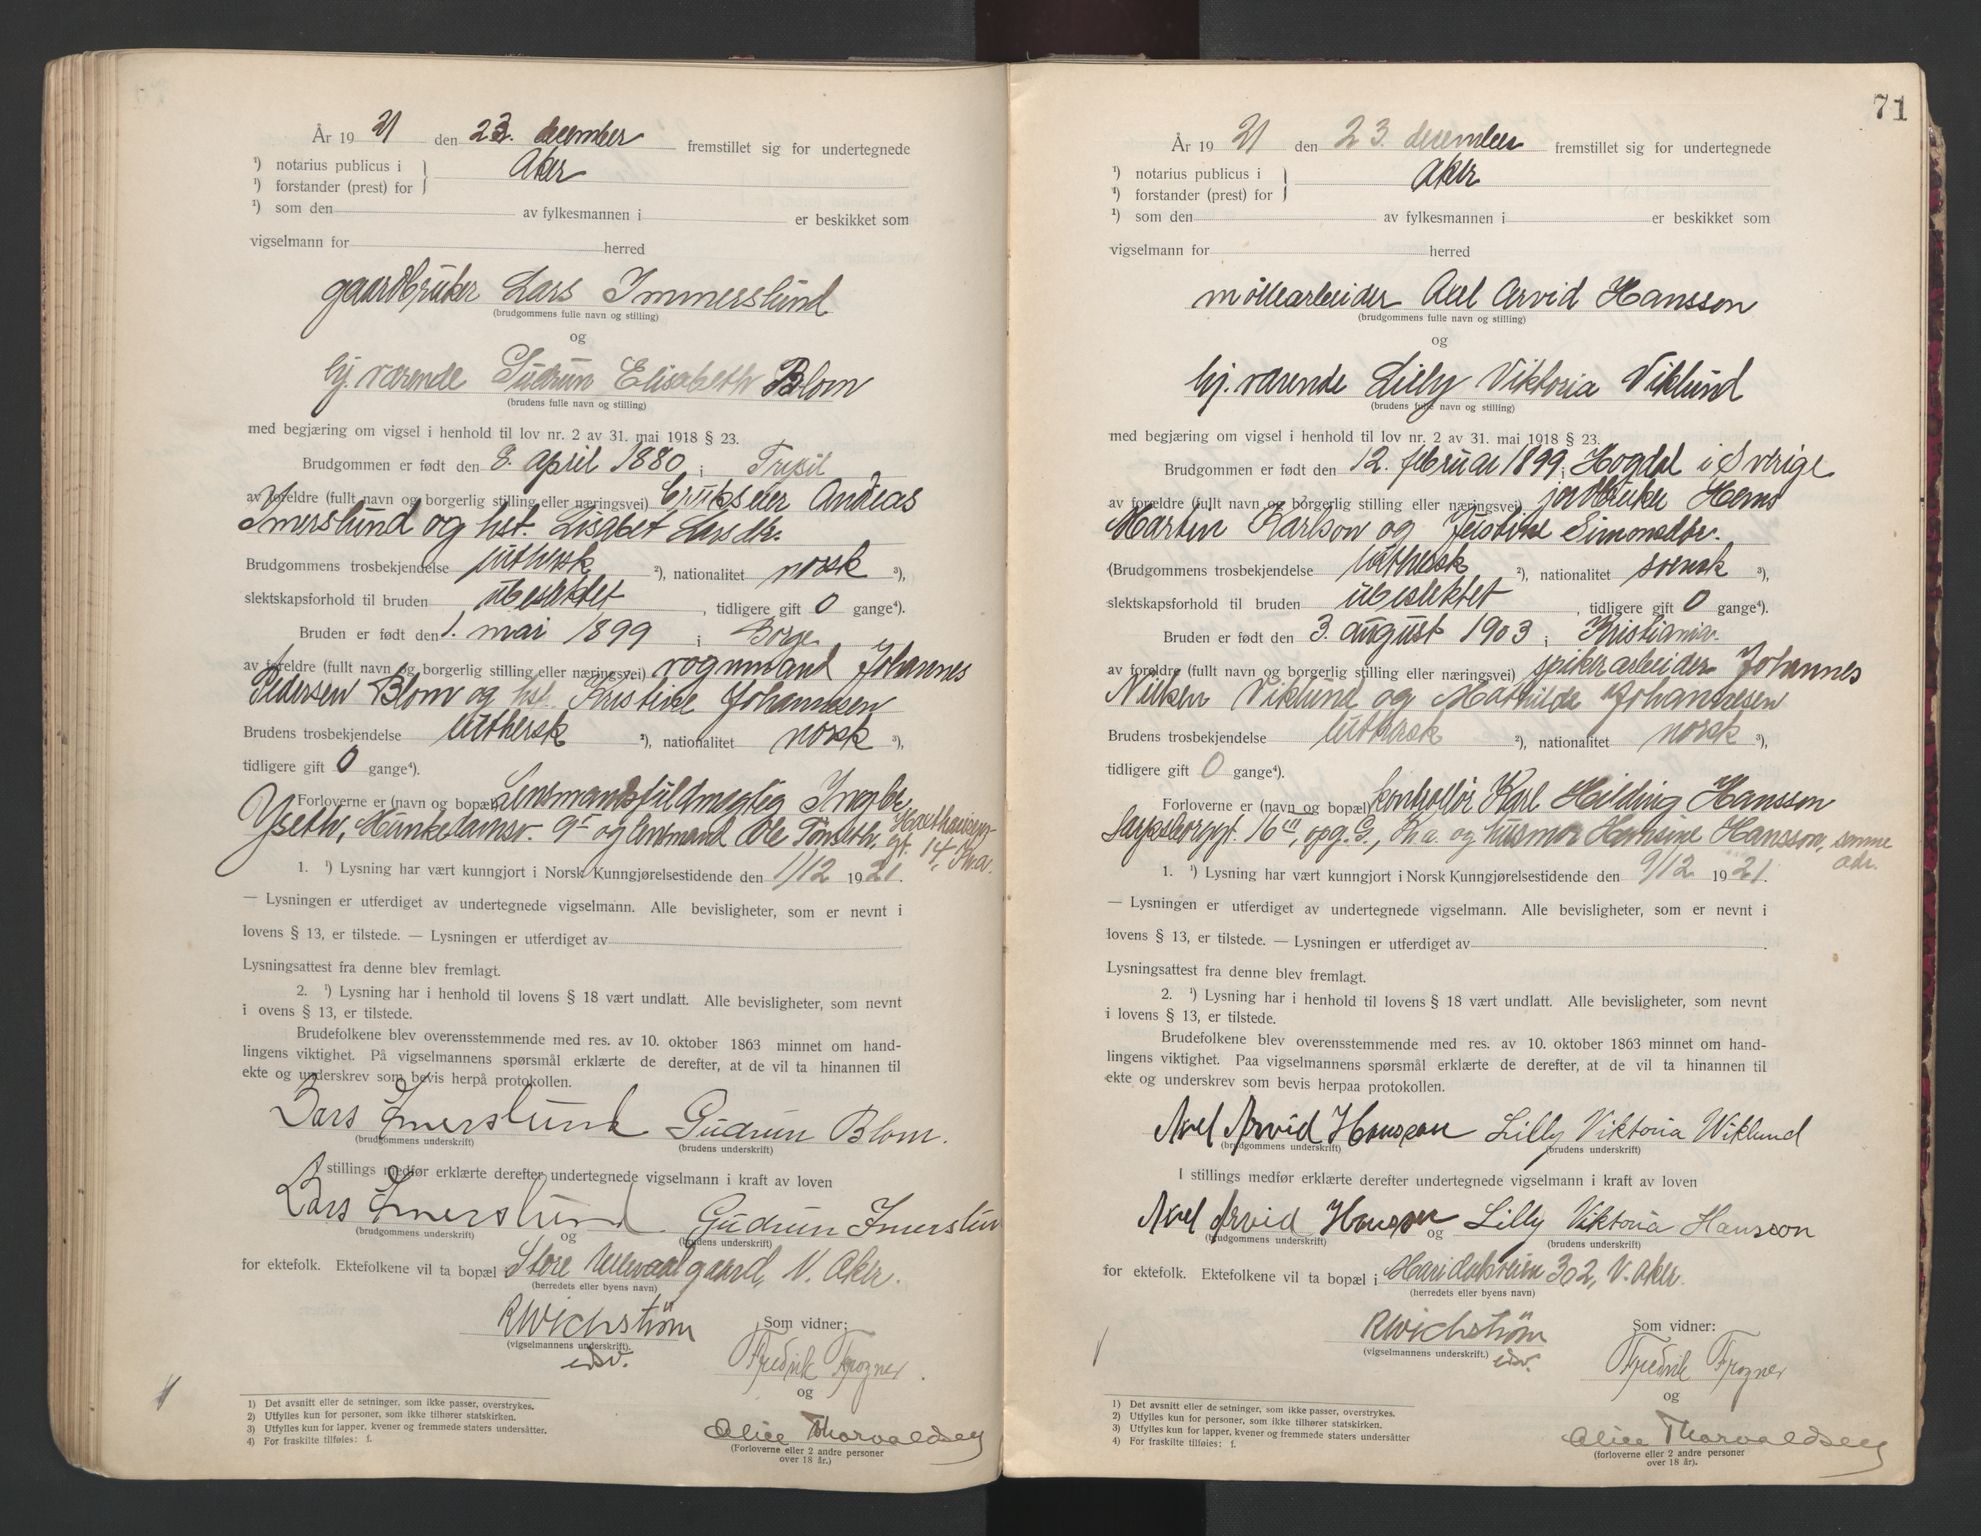 År 19 21 den 23. december fremstillet sig for undertegnede
¹) notarius publicus i } Aker
¹) forstander (prest) for
¹) som den av fylkesmannen i er beskikket som
vigselmann for herred
gaardbruker Lars Immerslund
(brudgommens fulle navn og stilling)
og
hj. værende Gudrun Elisabeth Blom
(brudens fulle navn og stilling)
med begjæring om vigsel i henhold til lov nr. 2 av 31. mai 1918 § 23.
Brudgommen er født den 8. april 1880 i Trysil
av foreldre (fullt navn og borgerlig stilling eller næringsvei) brukseier Andreas
Imerslund og hst. Lisabet Larsdtr.
Brudgommens trosbekjendelse luthersk ²), nationalitet norsk ³),
slektskapsforhold til bruden ubeslektet, tidligere gift 0 gange⁴).
Bruden er født den 1. mai 1899 i Borge
av foreldre (fullt navn og borgerlig stilling eller næringsvei) vognmand Johannes
Pedersen Blom og hst. Kristine Johannesen
Brudens trosbekjendelse luthersk ²), nationalitet norsk ³),
tidligere gift 0 gange⁴).
Forloverne er (navn og bopæl) Lensmandsfuldmægtig
Munkedamsv. og lensmand Ole Tonseth, gt. 14, Kr.a.
1. ¹) Lysning har vært kunngjort i Norsk Kunngjørelsestidende den 1/12 1921.
— Lysningen er utferdiget av undertegnede vigselmann. Alle bevisligheter, som er nevnt i
lovens § 13, er tilstede. — Lysningen er utferdiget av
Lysningsattest fra denne blev fremlagt.
2. ¹) Lysning har i henhold til lovens § 18 vært undlatt. Alle bevisligheter, som nevnt
i ovens § 13, er tilstede.
Brudefolkene blev overensstemmende med res. av 10. oktober 1863 minnet om hand-
lingens viktighet. På vigselmannens spørsmål erklærte de derefter, at de vil ta hinannen til
ekte og underskrev som bevis herpå protokollen.
Lars Imerslund Gudrun Blom.
(brudgommens underskrift) (brudens underskrift)
I stillings medfør erklærte derefter undertegnede vigselmann i kraft av loven
Lars Imerslund. og Gudrun Imerslun
(brudgommens underskrift) (brudens underskrift)
for ektefolk. Ektefolkene vil ta bopæl i Store Ullevaal gaard, V. Aker.
(herredets eller byens navn)
RWichstrøm Som vidner:
(vigselmannens underskrift).
edsv. Fredrik Frogner
og
Alice Thorvaldsen
(Forloverne eller 2 andre personer
over 18 år.)
1) Det avsnitt eller de setninger, som ikke passer, overstrykes.
2) Utfylles kun for personer, som ikke tilhører statskirken.
3) Utfylles kun for lapper, kvener og fremmede staters undersåtter.
4) For fraskilte tilføies: f.
71
År 19 21 den 23. december fremstillet sig for undertegnede
¹) notarius publicus i } Aker
¹) forstander (prest) for
¹) som den av fylkesmannen i er beskikket som
vigselmann for herred
møllearbeider Axel Arvid Hansson
(brudgommens fulle navn og stilling)
og
hj. værende Lilly Viktoria Viklund
(brudens fulle navn og stilling)
med begjæring om vigsel i henhold til lov nr. 2 av 31. mai 1918 § 23.
Brudgommen er født den 12. februar 1899 i Hogdal i Sverige
av foreldre (fullt navn og borgerlig stilling eller næringsvei) jordbruker Hans
Martin Karlson og Justine Simonsdtr.
(Brudgommens trosbekjendelse luthersk ²), nationalitet svensk ³),
slektskapsforhold til bruden ubeslektet, tidligere gift 0 gange⁴).
Bruden er født den 3. august 1903 i Kristiania.
av foreldre (fullt navn og borgerlig stilling eller næringsvei) spikerarbeider Johannes
Viklund og Mathilde Johannesen
Brudens trosbekjendelse luthersk ²), nationalitet norsk ³),
tidligere gift 0 gange⁴).
Forloverne er (navn og bopæl) kontrollør Karl Hilding Hansson
Sarpsborggt. 16 III, opg. G., Kr.a. og husmor Hansine Hansson, samme
adr.
1. ¹) Lysning har vært kunngjort i Norsk Kunngjørelsestidende den 9/12 1921.
— Lysningen er utferdiget av undertegnede vigselmann. Alle bevisligheter, som er nevnt i
lovens § 13, er tilstede. — Lysningen er utferdiget av
Lysningsattest fra denne blev fremlagt.
2. ¹) Lysning har i henhold til lovens § 18 vært undlatt. Alle bevisligheter, som nevnt
i lovens § 13, er tilstede.
Brudefolkene blev overensstemmende med res. av 10. oktober 1863 minnet om hand-
lingens viktighet. Paa vigselmannens spørsmål erklærte de derefter, at de vil ta hinannen til
ekte og underskrev som bevis herpaa protokollen.
Axel Arvid Hansson Lilly Viktoria Wiklund
(brudgommens underskrift) (brudens underskrift)
I stillings medfør erklærte derefter undertegnede vigselmann i kraft av loven
Axel Arvid Hansson og Lilly Viktoria Hansson
(brudgommens underskrift) (brudens underskrift)
for ektefolk. Ektefolkene vil ta bopæl i Maridalsveien 302, V. Aker.
(herredets eller byens navn)
RWichstrøm Som vidner:
(vigselmannens underskrift.) edsv.
Fredrik Frogner
og
Alice Thorvaldsen
(forloverne eller 2 andre personer
over 18 år).
1) Det avsnitt eller de setninger, som ikke passer, overstrykes.
2) Utfylles kun for personer, som ikke tilhører statskirken.
3) Utfylles kun for lapper, kvener og fremmede staters undersåtter
4) For fraskilte tilføies: f.